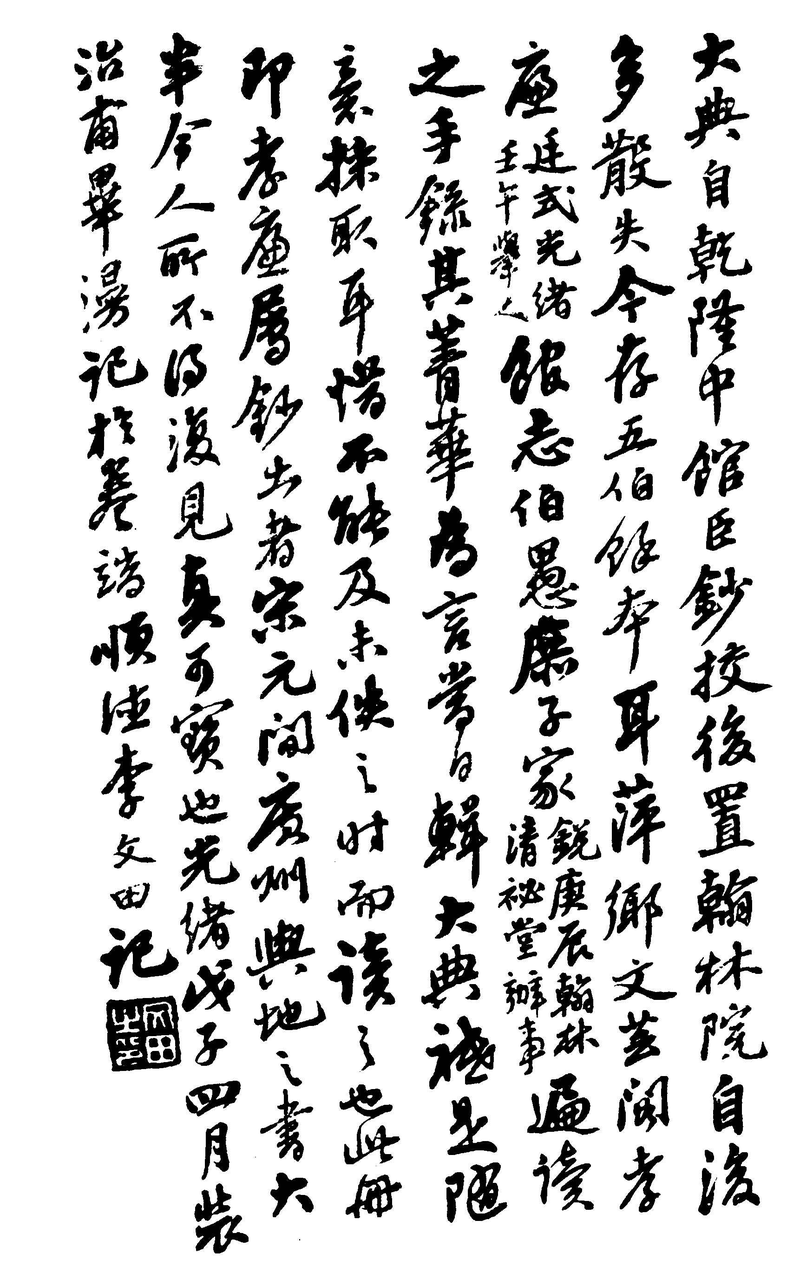 大典自乾隆中館臣鈔挍後置翰林院自後
多散失今存五伯餘本耳萍鄉文芸閣孝
廉廷式光緒壬午舉人館志伯愚䕻子家銳庚辰翰林清祕堂辦事遍读
之手錄其菁華為言當日輯大典祗是隨
意採取耳惜不能及未佚之时而读之也此冊
即孝廉屬鈔出者宋元間廣州輿地之書大
半今人所不得復見真可寶也光緒戊子四月裝
治甫畢漫記於卷端順德李文田記
文田之印